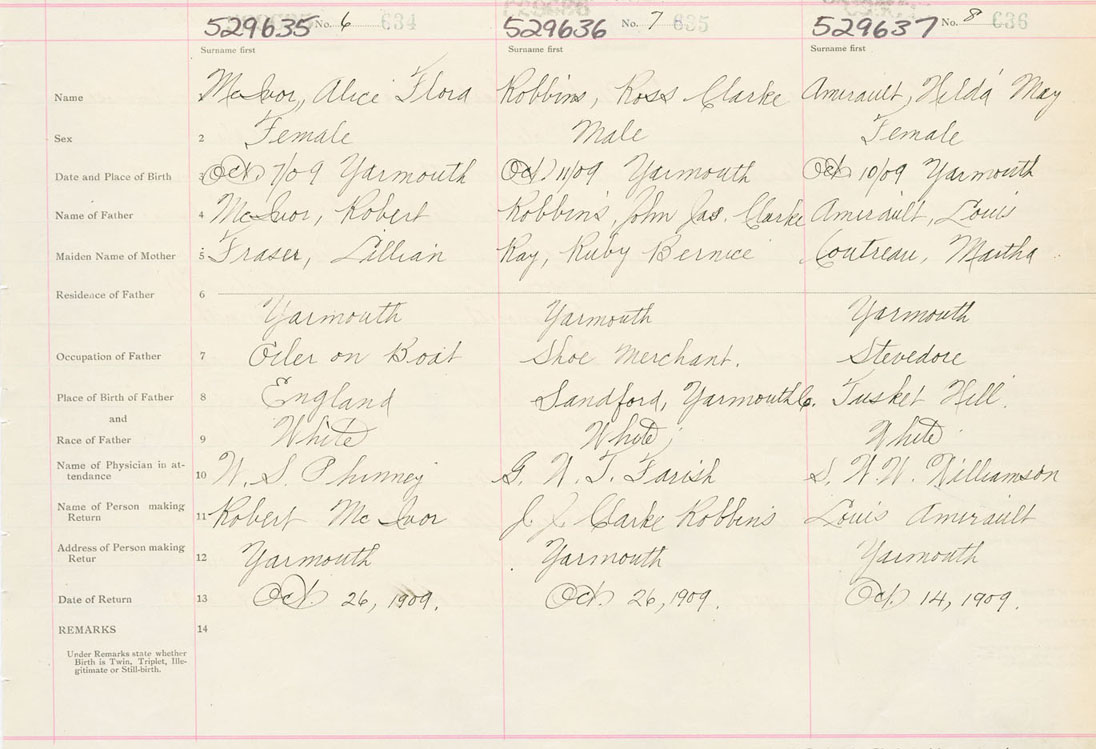 529635 No. 6 634 529636 No. 7 635 529637 No. 8 636
Surname first Surname first Surname first
Name 1 McIvor, Alice Flora Robbins, Ross Clarke Amirault, Hilda May
Sex 2 Female Male Female
Date and Place of Birth 3 Oct. 7/09 Yarmouth Oct. 11/09 Yarmouth Oct. 10/09 Yarmouth
Name of Father 4 McIvor, Robert Robbins, John Jas. Clarke Amirault, Louis
Maiden Name of Mother 5 Fraser, Lillian Ray, Ruby Bernice Coutreau, Martha
Residence of Father 6
Yarmouth Yarmouth Yarmouth
Occupation of Father 7 Oiler on Boat Shoe Merchant. Stevedore
Place of Birth of Father 8 England Sandford, Yarmouth Co. Tusket Hill.
and
Race of Father 9 White White White
Name of Physician in at-
tendance 10 W. S. Phinney G. W. T. Farish S. W. W. Williamson
Name of Person making
Return 11 Robert McIvor J. J. Clarke Robbins Louis Amirault
Address of Person making
Retur 12 Yarmouth Yarmouth Yarmouth
Date of Return 13 Oct. 26, 1909. Oct. 26, 1909. Oct. 14, 1909.
REMARKS 14
Under Remarks state whether
Birth is Twin, Triplet, Ille-
gitimate or Still-birth.